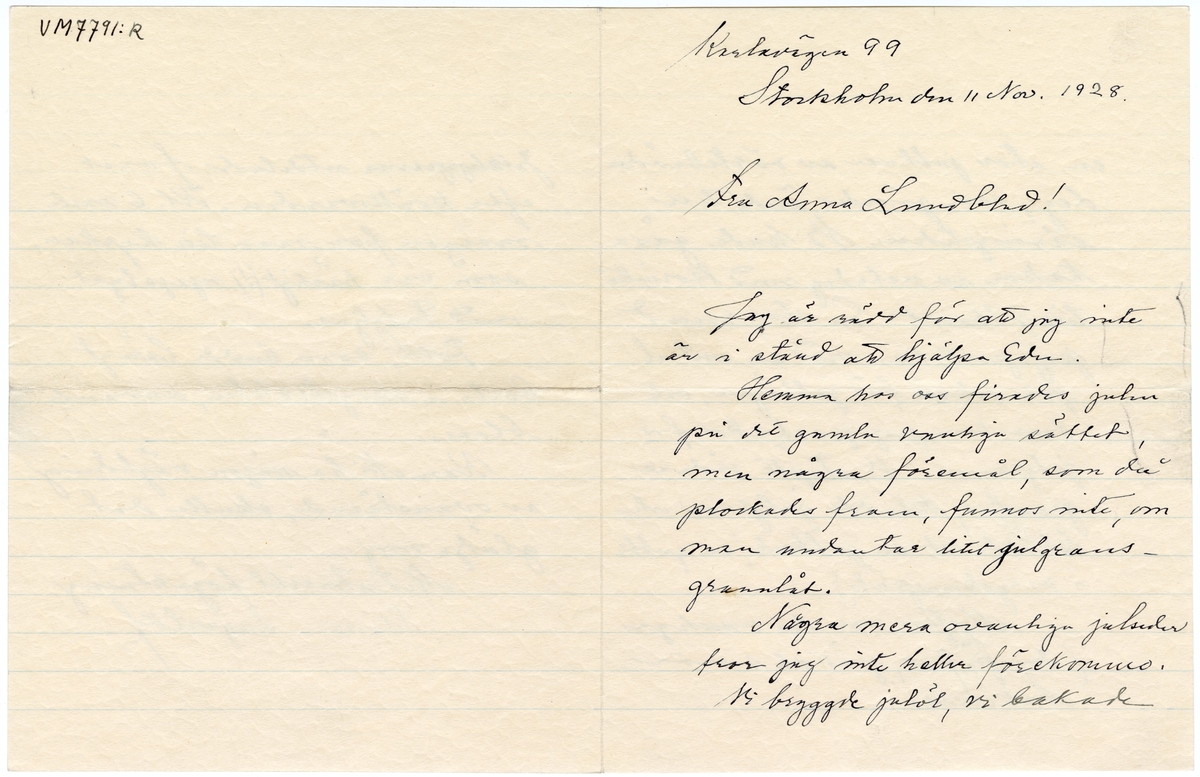 VM7791:R
Karlavägen 99
Stockholm den 11 Nov. 1928.
Fru Anna Lundblad!
Jag är rädd för att jag inte
är i stånd att hjälpa Eder.
Hemma hos oss firades julen
på det gamla vanliga sättet,
men några föremål, som då
plockades fram, funnos inte, om
man undantar litet julgrans-
grannlåt.
Några mera ovanliga julseder
tror jag inte heller förekommo.
Vi bryggde julöl, vi bakade